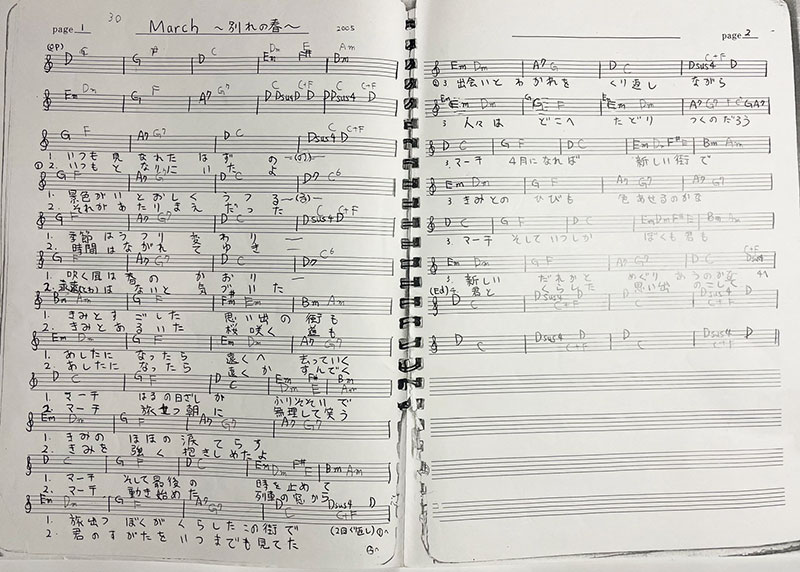 page 1
30
March ～別れの春～
2005
(OP) D C G F D C Em Dm F# E Bm Am
Em Dm G F A7 G7 C Dsus4 D C+F D Dsus4 C C+F D
G F A7 G7 D C Dsus4 C C+F D
1. いつも見なれたはずの
① 2. いつもとなりにいたよ
G F A7 G D C D7 C6
1. 景色がいとおしくうつる
2. それがあたりまえだった
G F A7 G7 D C Dsus4 C C+F D
1. 季節はうつり変わり
2. 時間はながれてゆき
G F A7 G7 D C D7 C6
1. 吹く風は春のかおり
2. 永遠(とわ)はないと気づいた
Bm Am G F F#m Em Bm Am
1. きみとすごした 思い出の街も
2. きみとあるいた 桜咲く道も
Em Dm G F Em Dm A7 G7
1. あしたになったら 遠くへ去っていく
2. あしたになったら 遠くかすんでく
D C G F D C Em Dm F# E Bm Am
1. マーチ はるの日ざしが ふりそそいで
2. マーチ 旅立つ朝に 無理して笑う
Em Dm G F A7 G7 A7 G7
1. きみの ほほの涙 てらす
2. きみを 強く抱きしめたよ
D C G F D C Em Dm F# E Bm Am
1. マーチ そして最後の 時を止めて
2. マーチ 動き始めた 列車の窓から
Em Dm G F A7 G7 D C Dsus4 D C+F
1. 旅出つ ぼくがくらしたこの街で
2. 君のすがたをいつまでも見てた
(2回くり返し) ①へ
page 2
Em Dm A7 G D C Dsus4 C+F D
3 出会いとわかれを くり返しながら
Em Dm G F Em Dm A7 G7
3. 人々は どこへ たどりつくのだろう
D C G F D C Em Dm F# E Bm Am
3. マーチ 4月になれば 新しい街で
Em Dm G F A7 G7 A7 G7
3 きみとの ひびも 色あせるのかな
D C G F D C Em Dm F# E Bm Am
3 マーチ そしていつしか ぼくも君も
Em Dm G F A7 G7 D C C+F Dsus4
3. 新しい だれかと めぐりあうのかな
君と くらした 思い出 のこして
(Ed) D C Dsus4 D C+F D C Dsus4 D C+F
D C Dsus4 D C+F D C Dsus4 D C+F